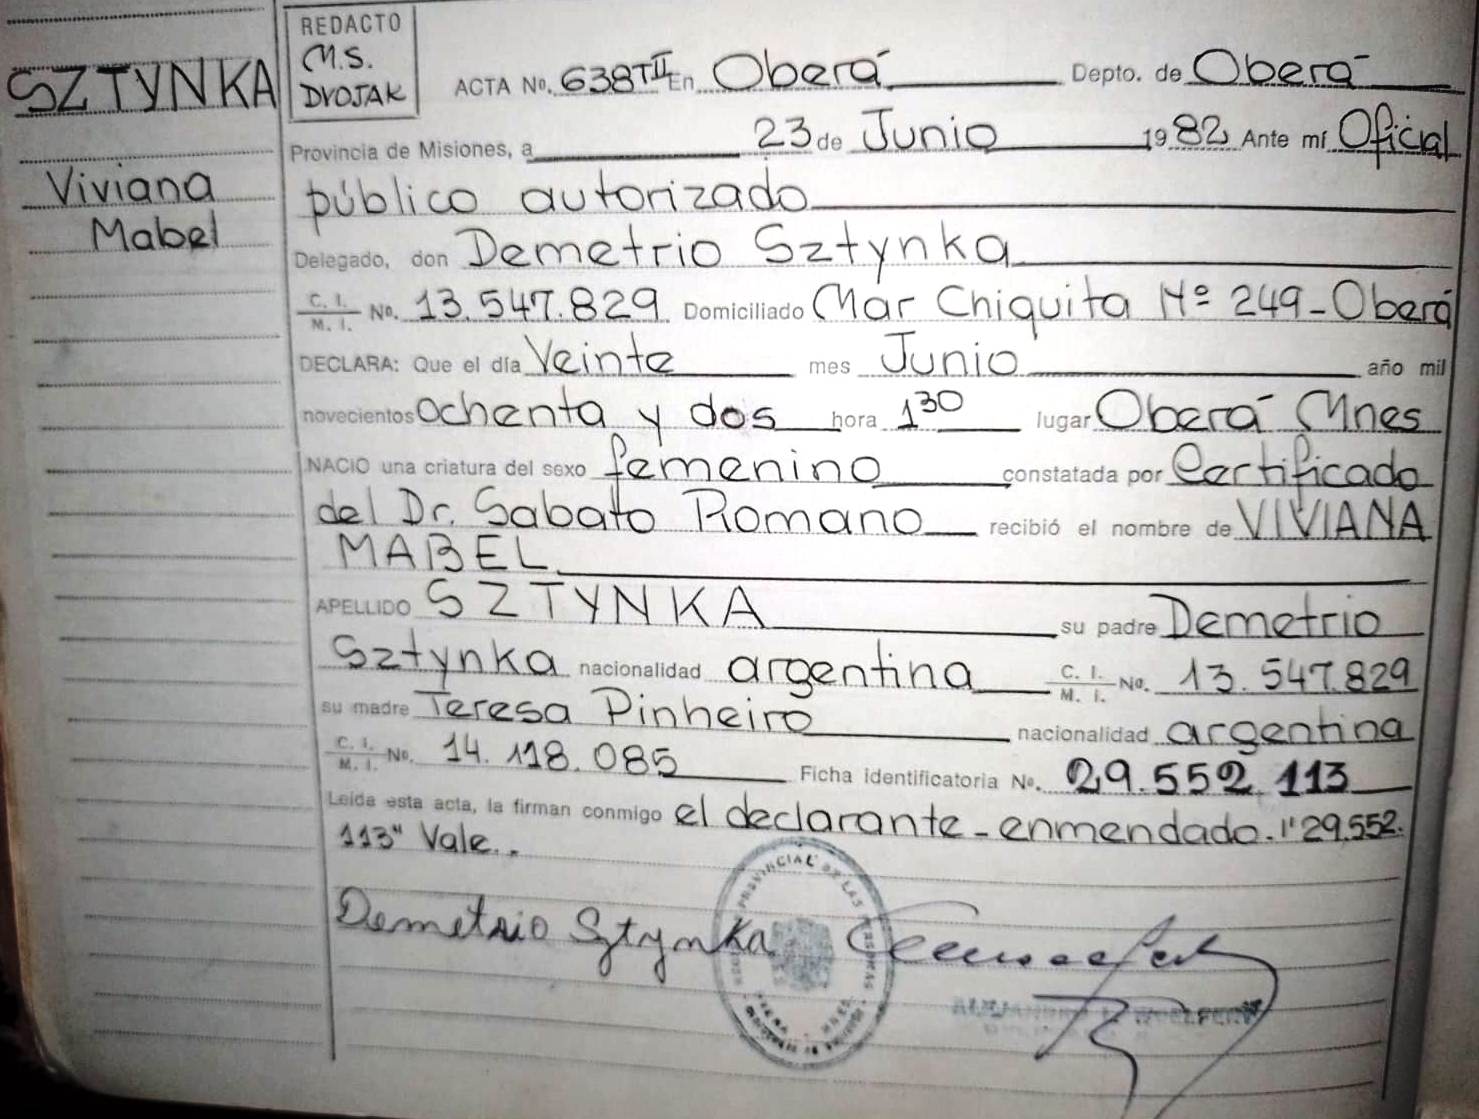 SZTYNKA
Viviana
Mabel
REDACTO
M.S.
DVOJAK
ACTA No. 638 T II En Oberá Depto. de Oberá
Provincia de Misiones, a 23 de Junio 1982 Ante mí Oficial
público autorizado
Delegado, don Demetrio Sztynka
C. I. / M. I. No. 13.547.829 Domiciliado Mar Chiquita Nº 249-Oberá
DECLARA: Que el día Veinte mes Junio año mil
novecientos ochenta y dos hora 1 30 lugar Oberá Mnes
NACIO una criatura del sexo femenino constatada por Certificado
del Dr. Sabato Romano recibió el nombre de VIVIANA
MABEL
APELLIDO SZTYNKA su padre Demetrio
Sztynka nacionalidad argentina C. I. / M. I. No. 13.547.829
su madre Teresa Pinheiro nacionalidad argentina
C. I. / M. I. No. 14.118.085 Ficha identificatoria No. 29.552.113
Leída esta acta, la firman conmigo el declarante-enmendado.1"29.552.
113" Vale..
Demetrio Sztynka
PROVINCIAL DE LAS PERSONAS